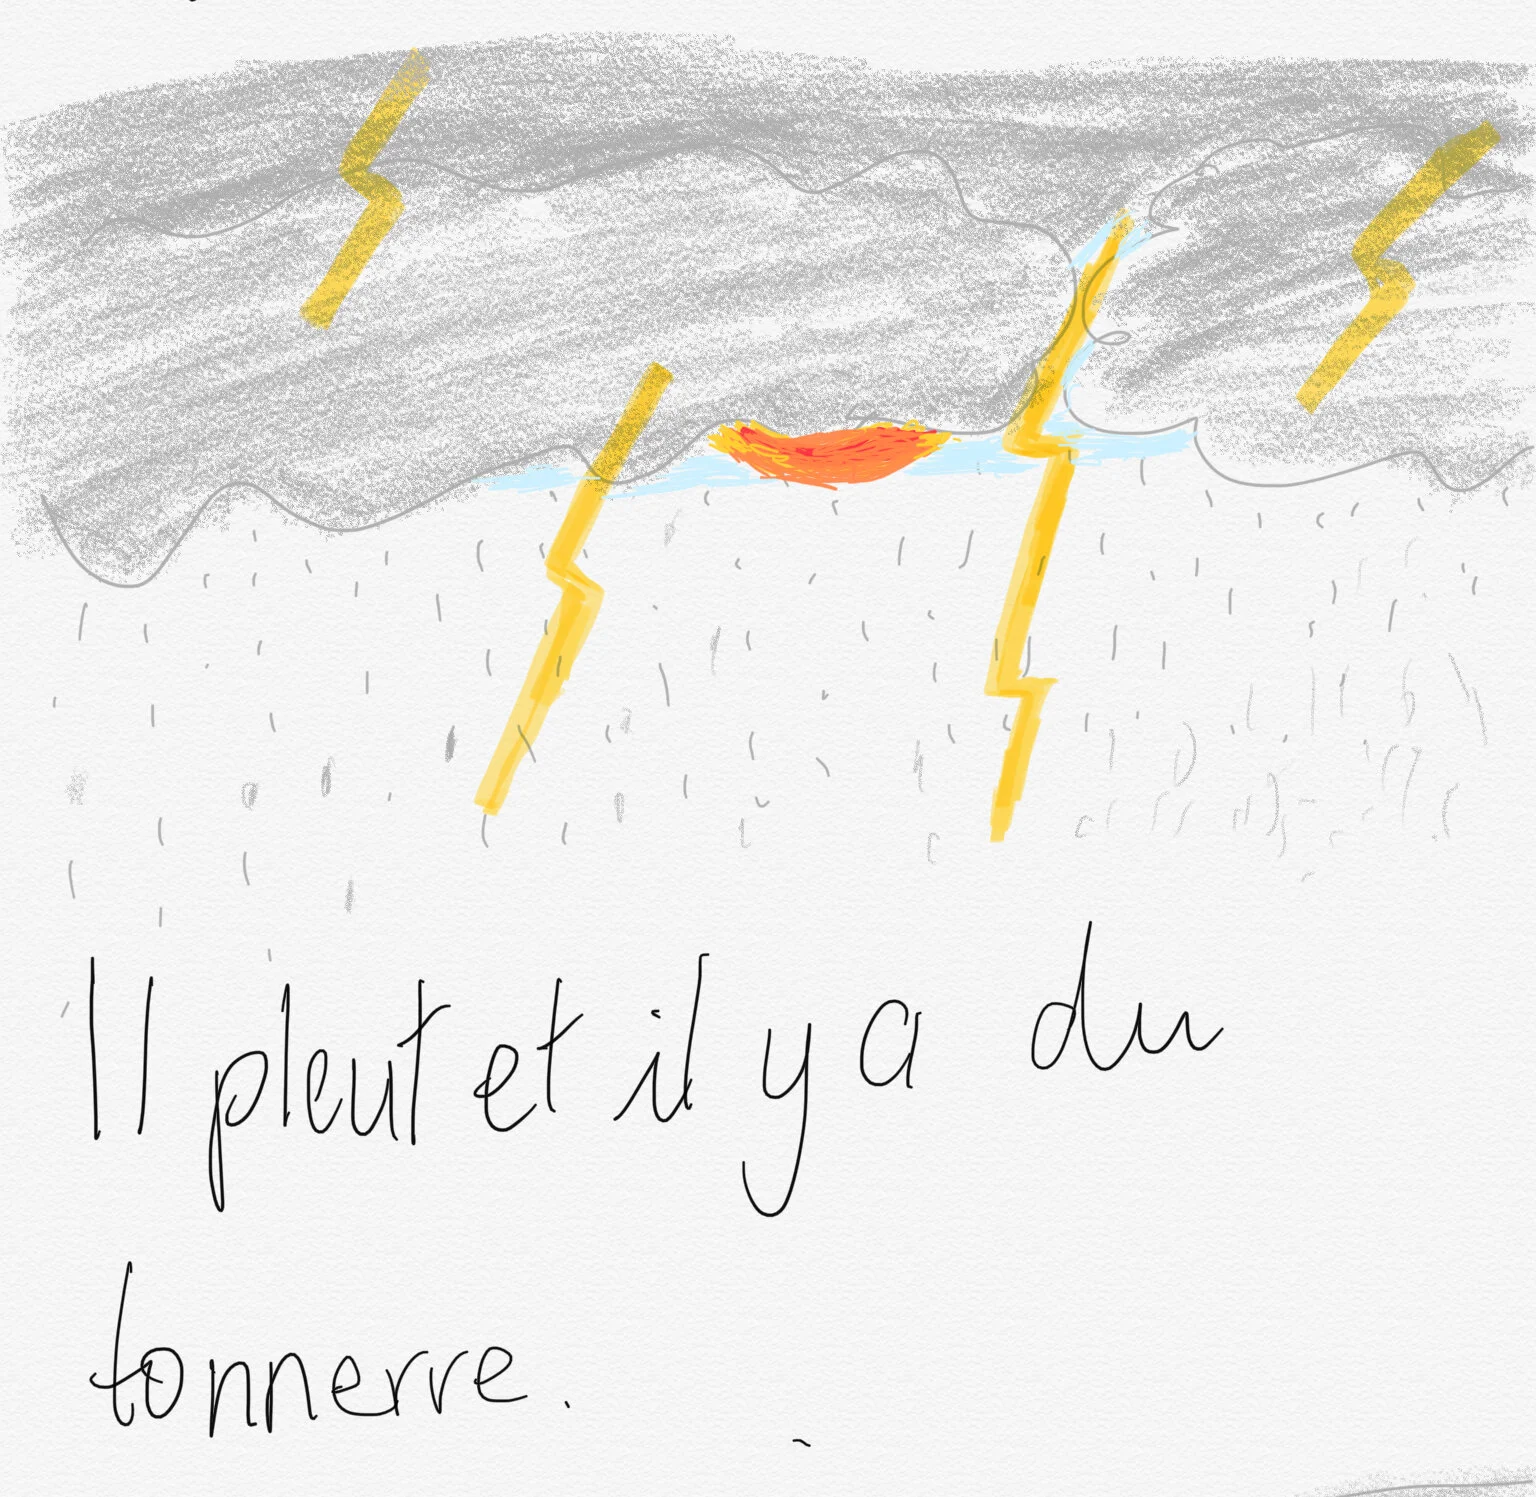 Il pleut et il y a du
tonnerre.